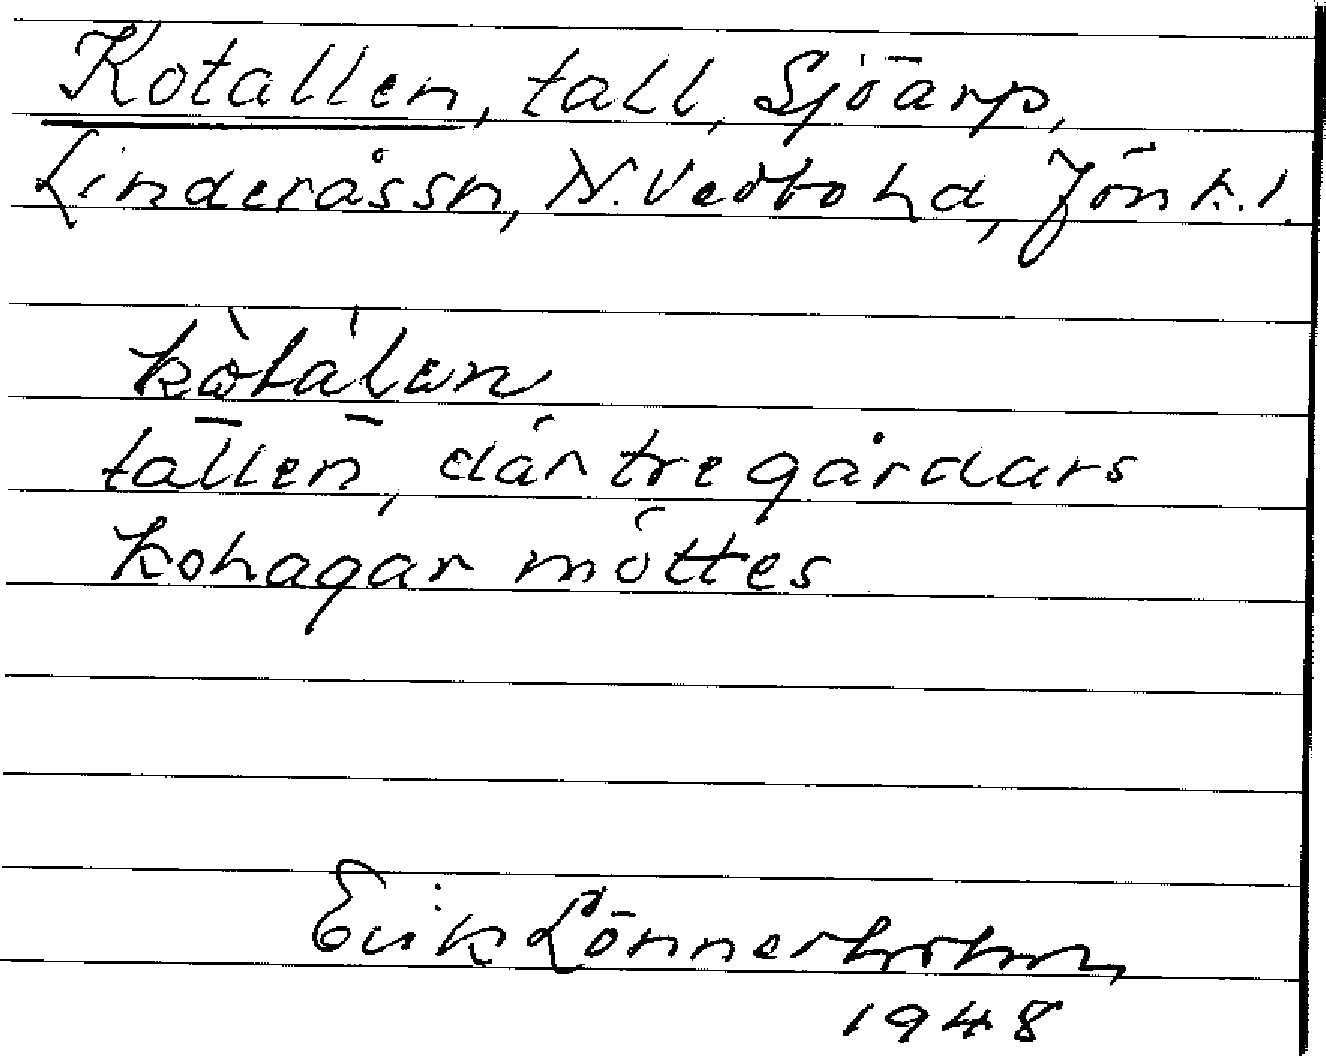 Kotallen, tall, Sjöarp,
Linderås sn, N. Vedbo hd, Jönk. l.
kò̱tá̱len
tallen, där tre gårdars
kohagar möttes
Erik Lönnerholm
1948